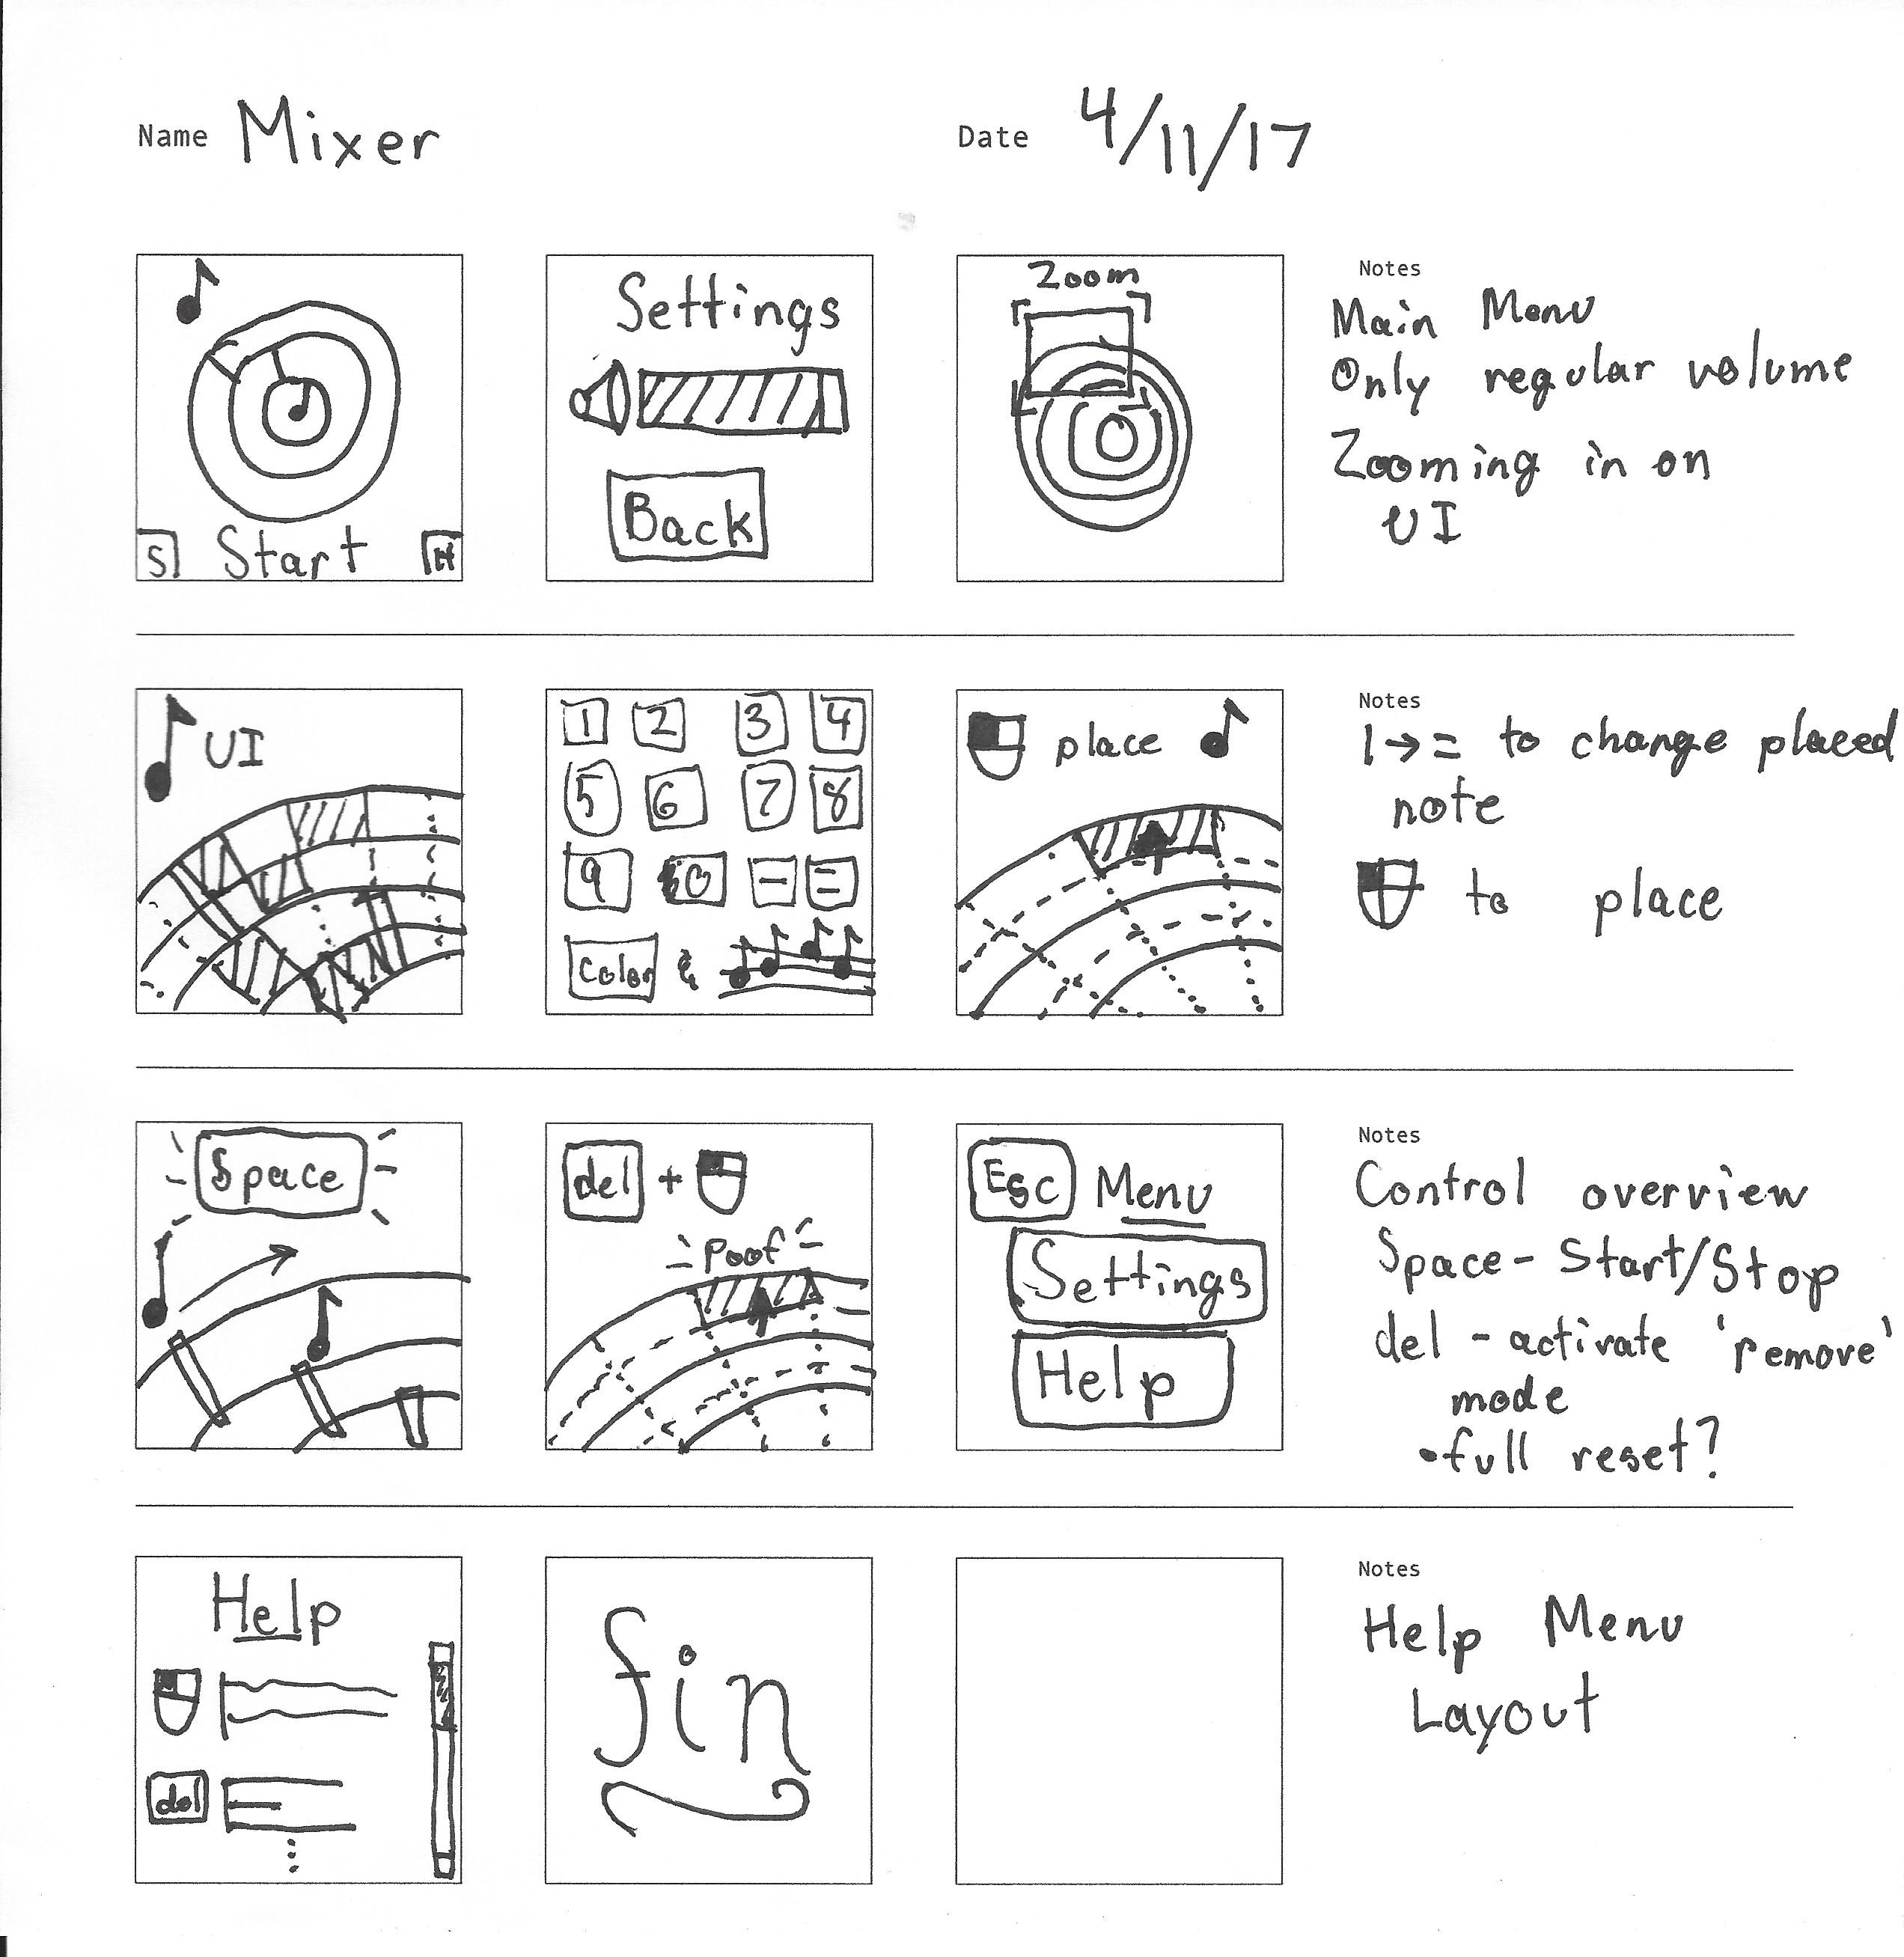 Name Mixer
Date 4/11/17
S Start H
Settings
Back
Zoom
Notes
Main Menu
Only regular volume
Zooming in on
UI
UI
1 2 3 4
5 6 7 8
9 0 - =
Color &
place
Notes
1→= to change placed
note
to place
Space
del +
Poof
Esc Menu
Settings
Help
Notes
Control overview
Space - Start/Stop
del - activate 'remove'
mode
•full reset?
Help
del
fin
Notes
Help Menu
Layout